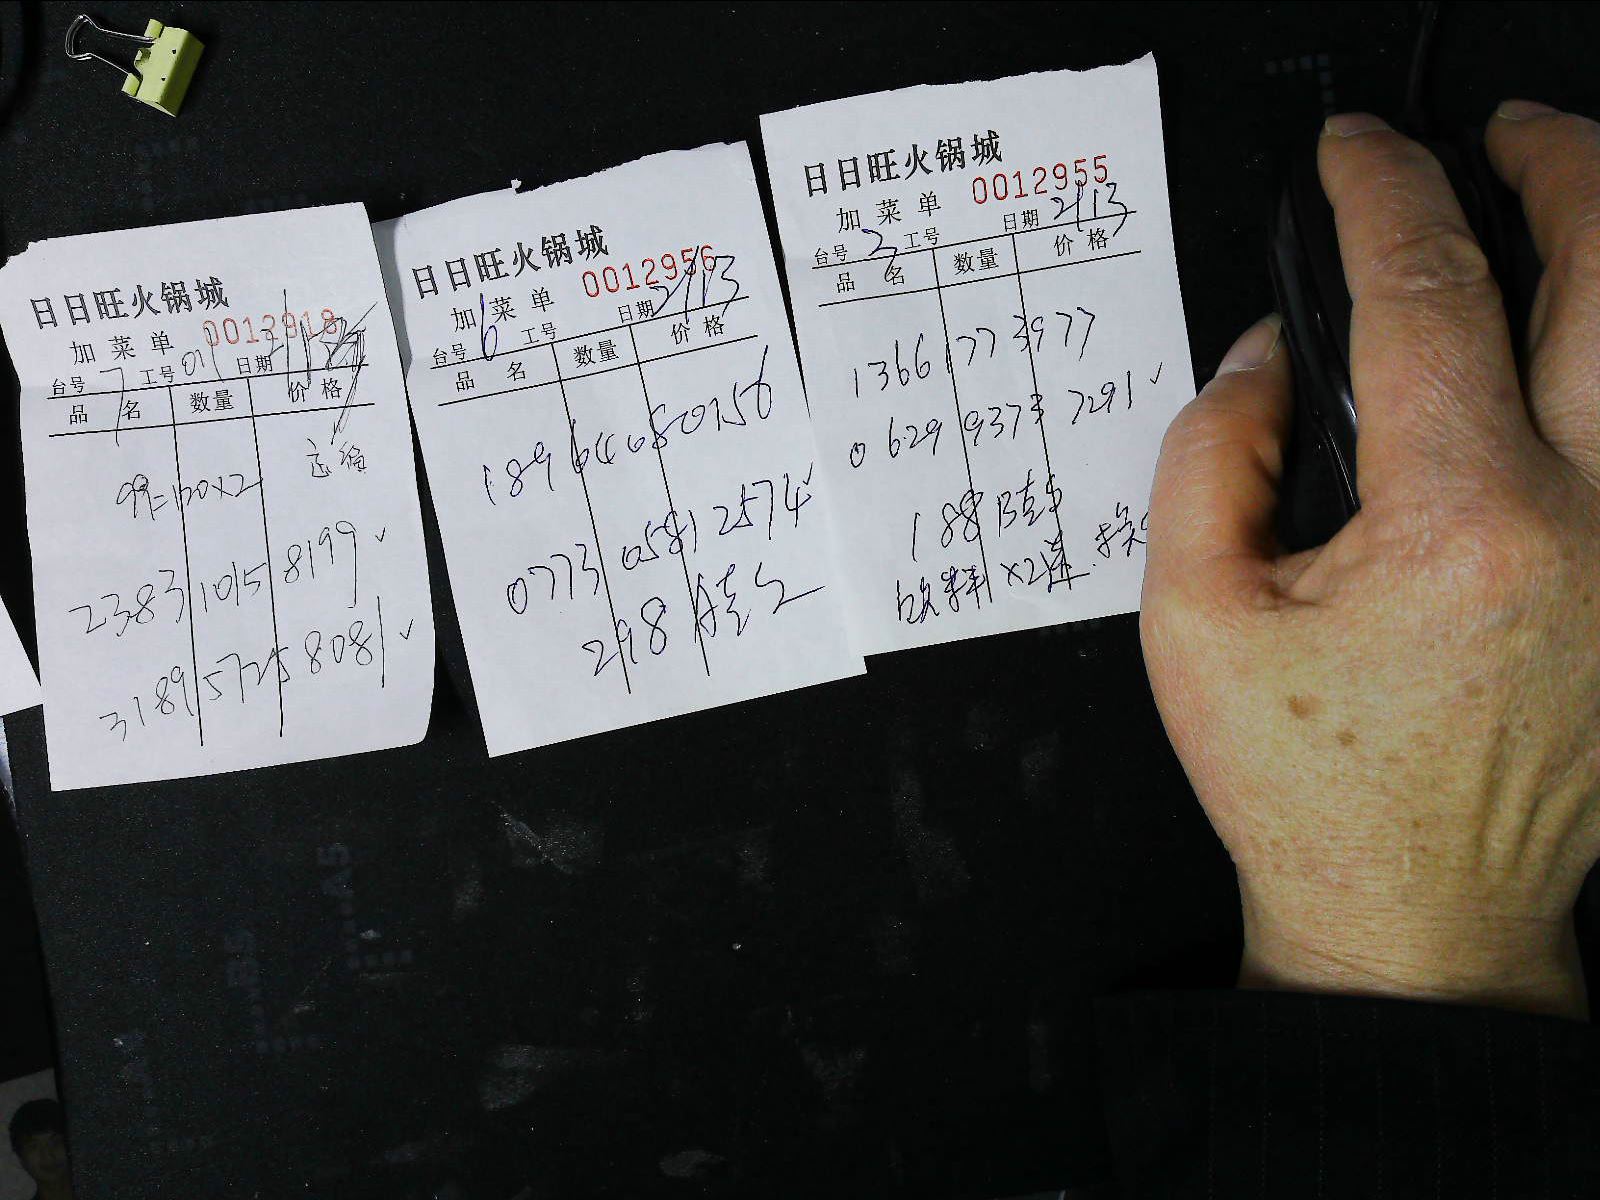 日日旺火锅城
0012918
加菜单
台号 7 工号 01 日期
品名 数量 价格
99=100x2
2383 1015 8199 ✓
3189 5725 8081 ✓
日日旺火锅城
0012956
加菜单
台号 6 工号 日期 2/13
品名 数量 价格
189 64080756
0773 0581 2574 ✓
298 A套
日日旺火锅城
0012955
加菜单
台号 3 工号 日期 2/13
品名 数量 价格
1366 1773977
0629 9373 7291 ✓
188 B套
饮料 x2